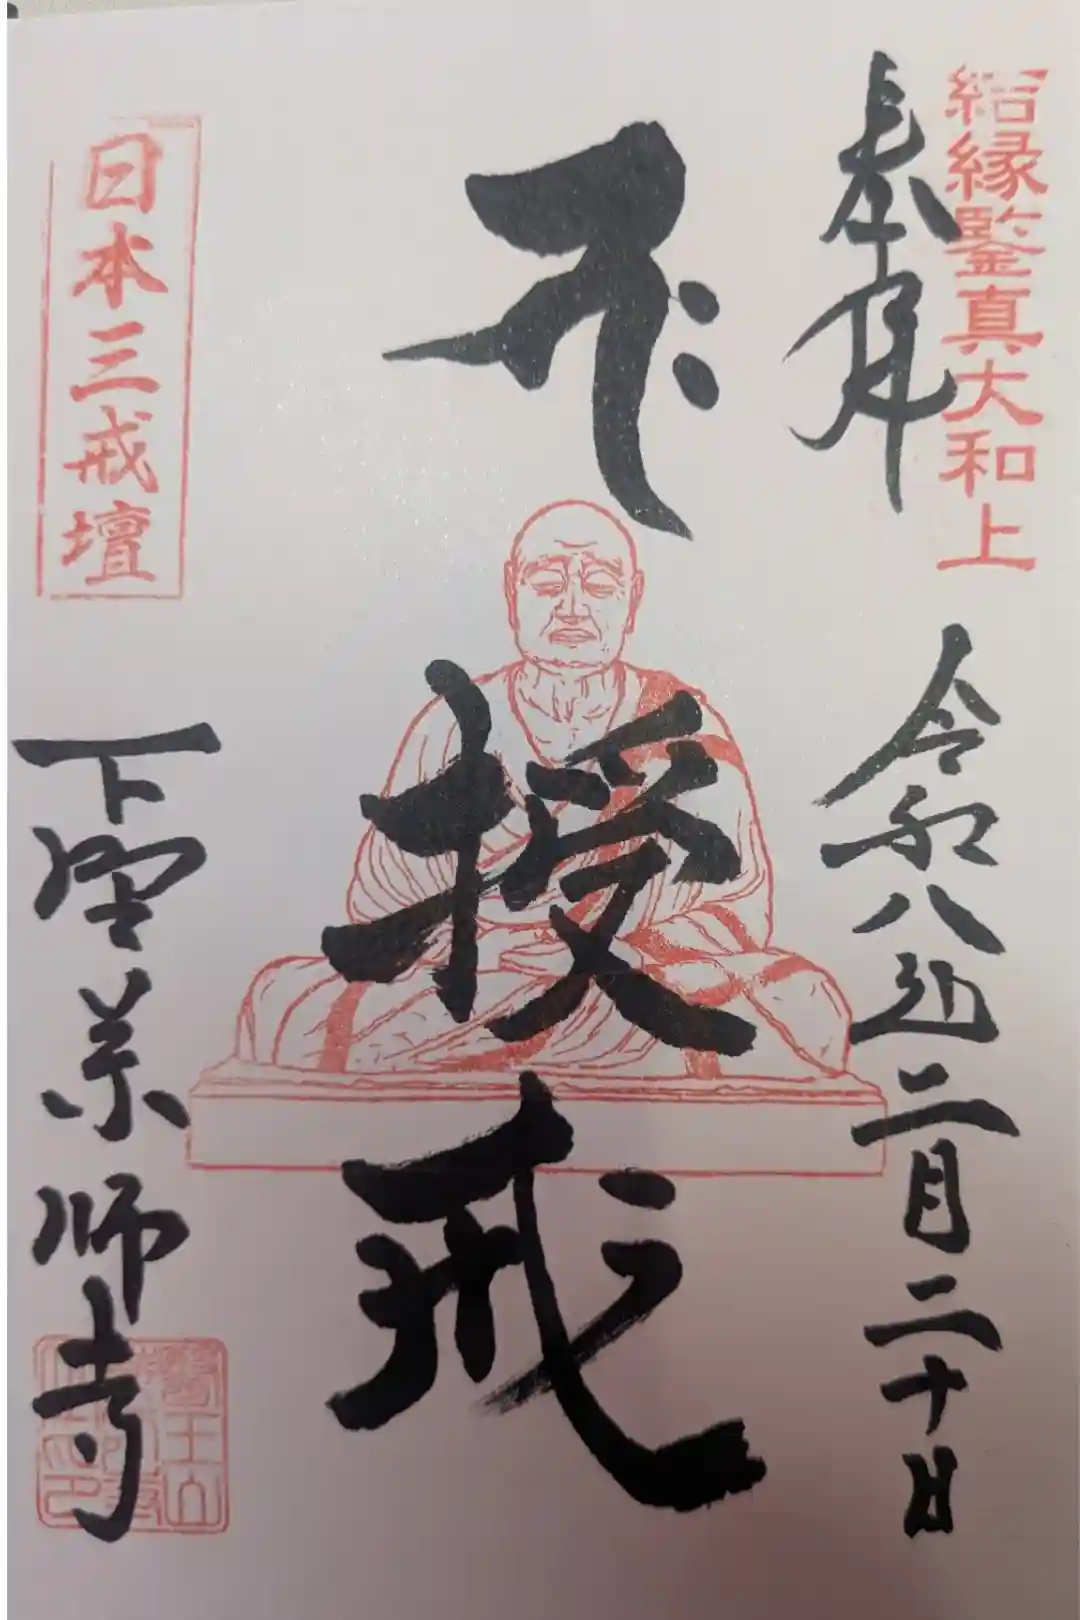 結縁鑒真大和上
奉拝
令和八年二月二十日
授戒
日本三戒壇
下野薬師寺
醫王山